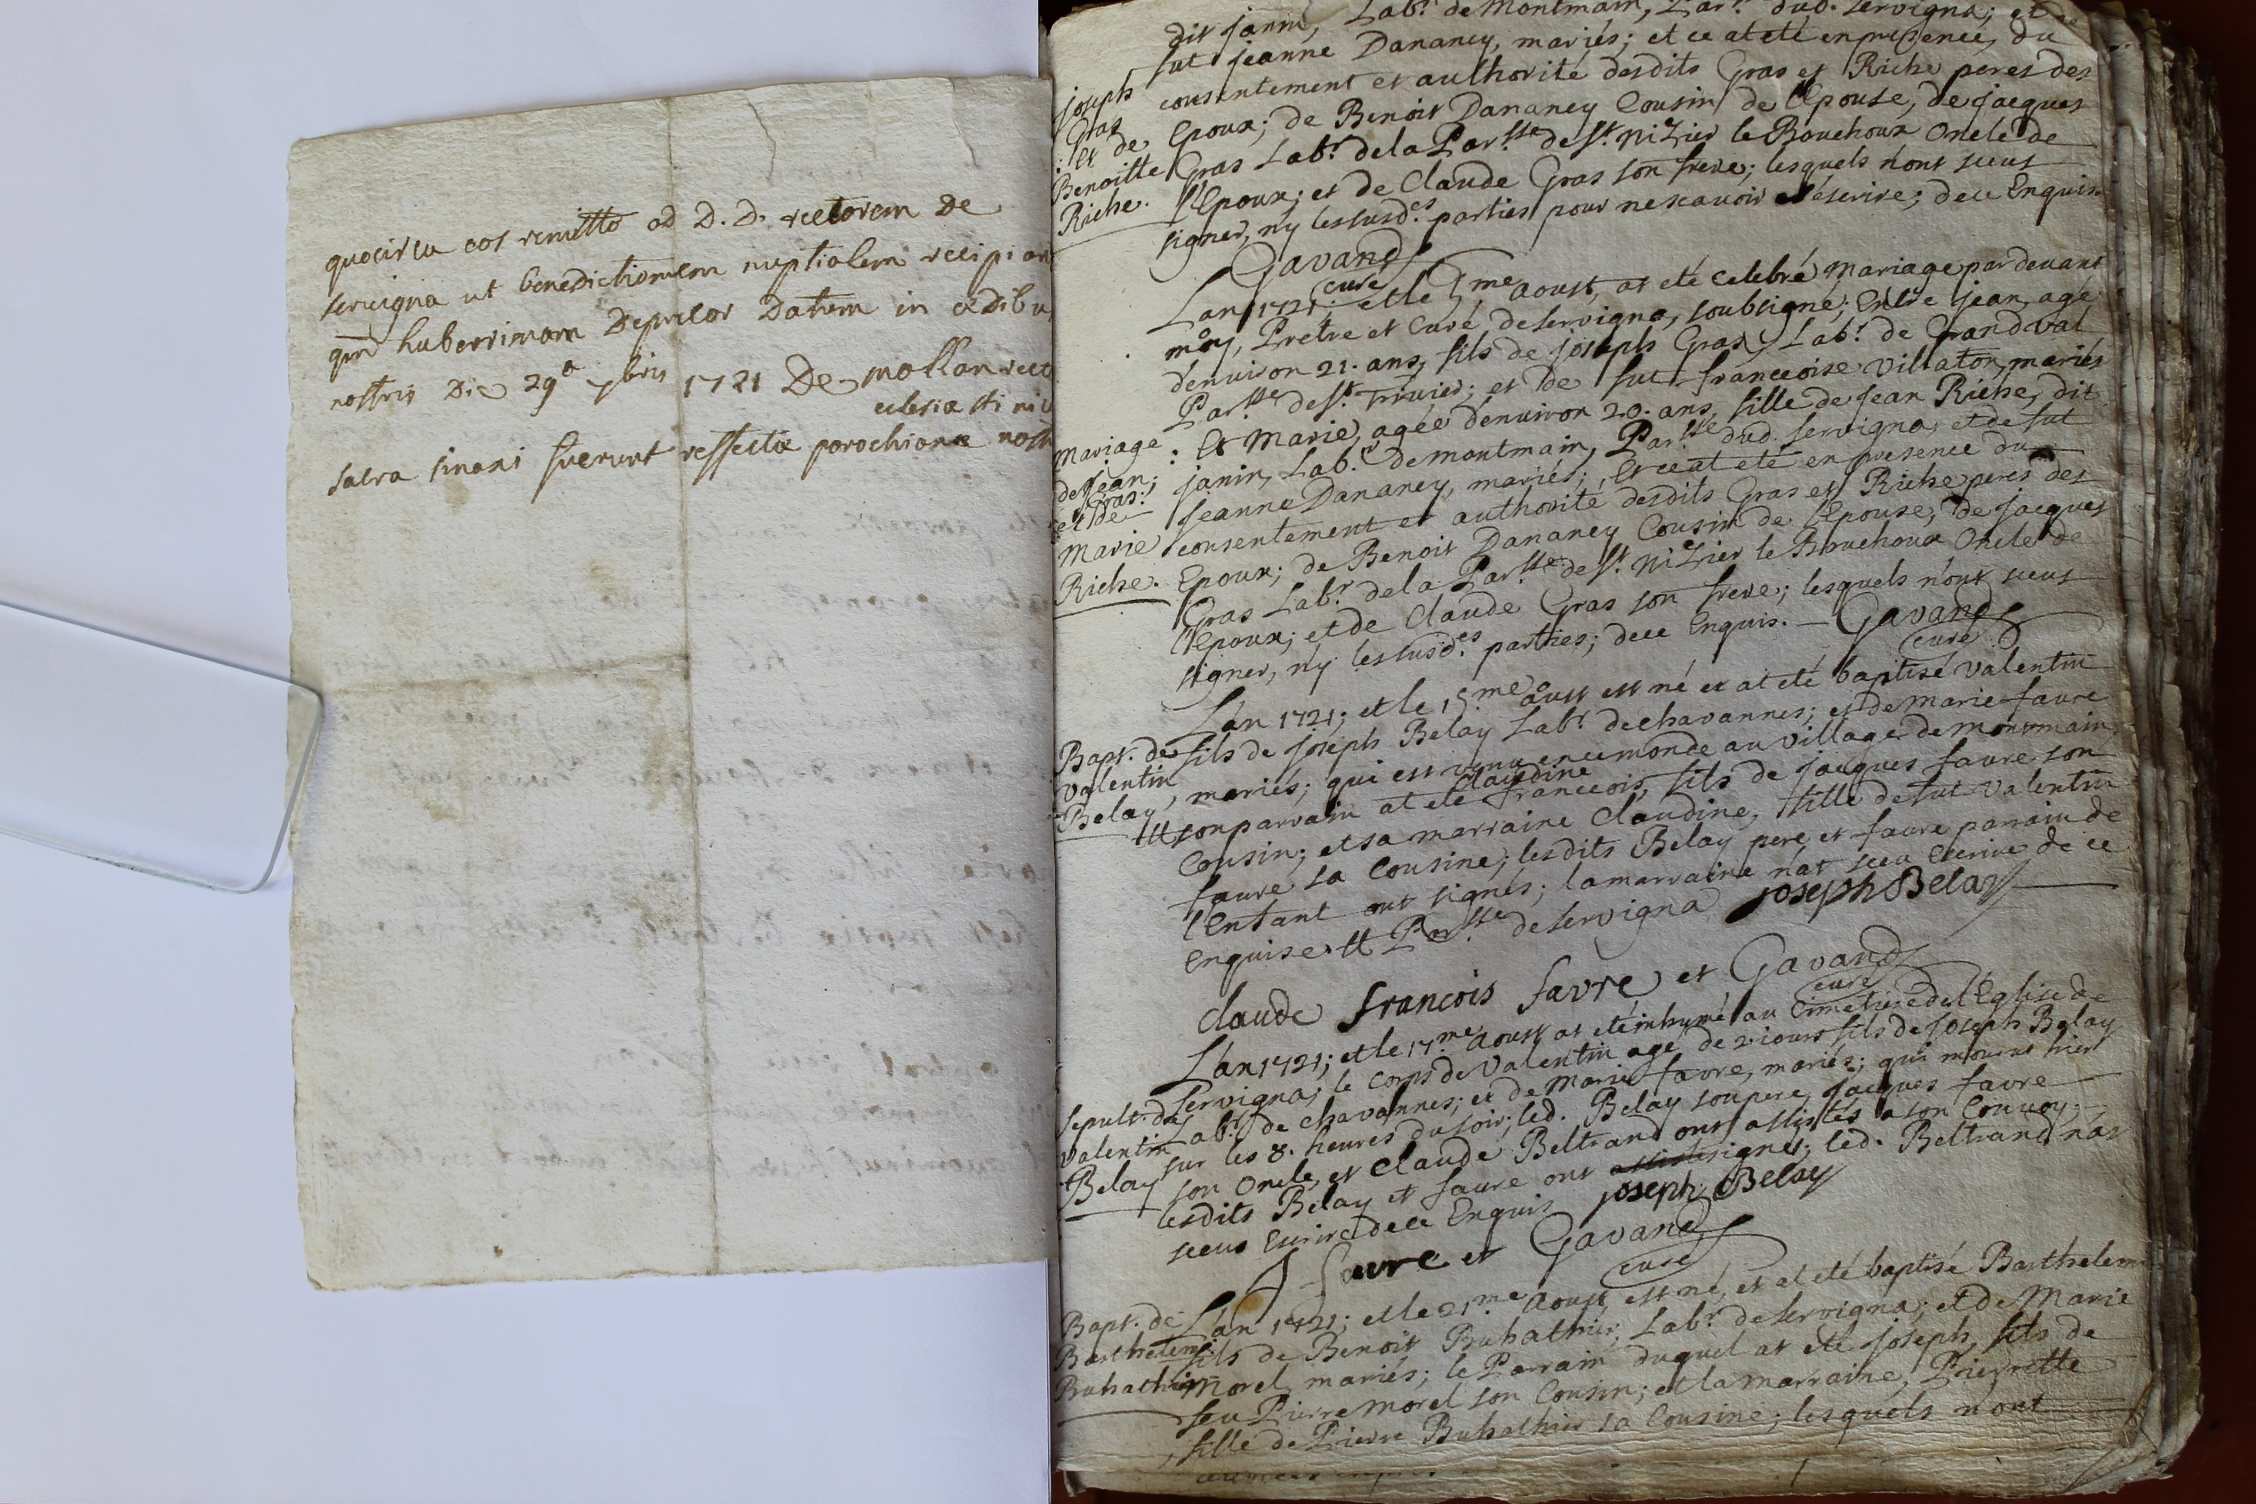 quocirca eos remitto ad D. D. rectorem De
servigna ut benedictionem nuptialem recipiant
quod huberrimam Deprecor Datum in ædibus
nostris Die 29a 7bris 1721 De mollan rector
ecclesiæ sti
sacra sinaxi fuerunt reffectæ parochianæ nostræ
dit janin, Labr. de Montmain, Parr. dud. servigna; et de
fut jeanne Dananey, mariés; et ce at eté en presence, du
consentement et authorité desdits Gras et Riche peres des
Epoux; de Benoit Dananey Cousin de l'Epouse, de jacques
Gras Labr. de la Parsse. de st. niZier le Bouchoux Oncle de
l'Epoux; et de Claude Gras son frere; lesquels n'ont sceus
signer, n'y les susdes. parties pour ne scavoir escrire; de ce Enquis.
joseph
Gras
et de
Benoitte
Riche.
Gavand
curé
L'an 1721; et le 5me. aoust, at eté celebré mariage par devant
moy, Pretre et Curé, de servigna, soubsigné; Entre jean, agé
d'environ 21. ans, fils de joseph Gras, Labr. de Grandval
Parsse. de st. Trivier; et de fut francoise Villaton, mariés
: Et Marie, agée d'environ 20. ans, fille de jean Riche, dit
janin, Labr. de montmain, Parsse. dud. servigna, et de fut
jeanne Dananey, mariés; Et ce at eté en presence du
consentement et authorité desdits Gras et Riche peres des
Epoux; de Benoit Dananey Cousin de l'Epouse, de jacques
Gras Labr. de la Parsse. de st. niZier le Bouchoux Oncle de
l'Epoux; et de Claude Gras son frere; lesquels n'ont sceus
signer, n'y les susdes. parties; de ce Enquis. — Gavand
curé
Mariage
de jean
Gras.
et de
Marie
Riche.
L'an 1721; et le 15me aoust est né et at eté baptisé Valentin
fils de joseph Belay Labr. de chavannes; et de Marie favre
mariés; qui est venu en ce monde au village de Montmain
# son parrain at eté Claudine francois, fils de jacques favre son
Cousin; et sa marraine Claudine, fille de fut Valentin
favre sa Cousine; lesdits Belay pere et favre parrain de
l'Enfant ont signés; la marraine n'at sceu Escrire de ce
enquise # Parsse. de servigna joseph Belay
Bapt. de
Valentin
Belay
claude francois favre et Gavand
curé
L'an 1721; et le 17me. aoust at eté inhumé au Cimetiere de l'Eglise de
servigna; le corps de Valentin agé de 2 jours fils de joseph Belay
Labr. de chavannes; et de Marie favre, mariés; qui mourut hier
sur les 8. heures du soir; led. Belay son pere, jacques favre
son Oncle, et Claude Beltrand ont assistés a son Convoy.
lesdits Belay et favre ont signés; led. Beltrand n'at
sceus Escrire de ce Enquis joseph Belay
J favre et Gavand
curé
Sepult. de
Valentin
Belay
L'an 1721; et le 21me. aoust, est né, et at eté baptisé Barthelemi
fils de Benoit Buhathier, Labr. de servigna; et de Marie
Morel mariés; le Parrain duquel at eté joseph, fils de
feu Pierre Morel son Cousin; et la marraine, Pierrette
fille de Pierre Buhathier sa Cousine; lesquels n'ont
Bapt. de
Barthelemi
Buhathier